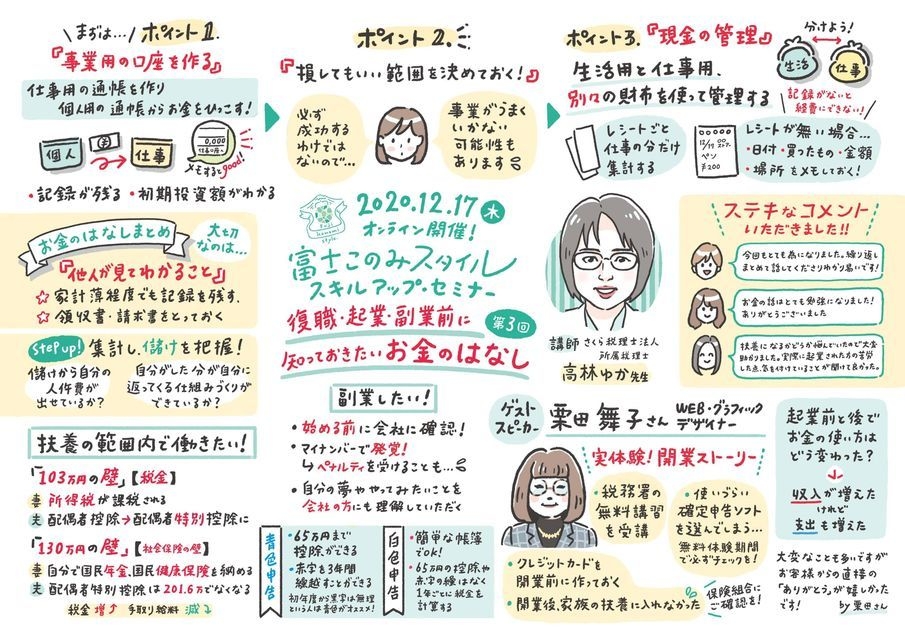 まずは…
ポイント1.
『事業用の口座を作る』
仕事用の通帳を作り
個人用の通帳からお金をひっこす!
個人
仕事
0,000
メモするとgood!
・記録が残る ・初期投資額がわかる
お金のはなしまとめ
大切
なのは…
『他人が見てわかること』
☆家計簿程度でも記録を残す.
☆領収書・請求書をとっておく
STEP UP! 集計し、儲けを把握!
儲けから自分の
人件費が
出せているか?
自分がした分が自分に
返ってくる仕組みづくりが
できているか?
扶養の範囲内で働きたい!
「103万円の壁」【税金】
妻 所得税が課税される
夫 配偶者控除→配偶者特別控除に
「130万円の壁」【社会保険の壁】
妻 自分で国民年金、国民健康保険を納める
夫 配偶者特別控除は201.6万でなくなる
税金 増↑ 手取り給料 減↓
ポイント2.
『損してもいい範囲を決めておく!』
必ず
成功する
わけでは
ないので…
事業がうまく
いかない
可能性も
あります
2020.12.17 木
オンライン開催!
富士このみスタイル
スキルアップ・セミナー
第3回
復職・起業・副業前に
知っておきたいお金のはなし
副業したい!
・始める前に会社に確認!
・マイナンバーで発覚!
↳ペナルティを受けることも…
・自分の夢ややってみたいことを
会社の方にも理解していただく
青色申告
・65万円まで
控除ができる
・赤字を3年間
繰越すことができる
初年度から黒字は無理
という人は青色がオススメ!
白色申告
・簡単な帳簿
でOK!
・65万円の控除や
赤字の繰はなく
1年ごとに税金を
計算する
ポイント3.『現金の管理』
生活用と仕事用、
別々の財布を使って管理する
分けよう!
生活
仕事
記録がないと
経費にできない!
レシートごと
仕事の分だけ
集計する
ペン
¥200
レシートが無い場合…
・日付・買ったもの・金額
・場所 をメモしておく!
講師 さくら税理士法人
所属税理士
高林ゆか先生
ステキなコメント
いただきました!!
今回もとても為になりました。繰り返し
まとめて話してくださりわかり易いです!
お金の話はとても勉強になりました!
ありがとうございました
扶養になるかどうか悩んでいたので大変
助かりました。実際に起業された方の苦労
した点、気を付けていることが聞けて良かった。
ゲスト
スピーカー
栗田 舞子さん
WEB・グラフィック
デザイナー
実体験!開業ストーリー
・税務署の
無料講習
を受講
・使いづらい
確定申告ソフト
を選んでしまう…
無料体験期間
で必ずチェックを!
・クレジットカードを
開業前に作っておく
・開業後、家族の扶養に入れなかった
保険組合に
ご確認を!
起業前と後で
お金の使い方は
どう変わった?
収入が増えた
けれど
支出も増えた
大変なことも多いですが
お客様からの直接の
「ありがとう」が嬉しかった
です!
by栗田さん